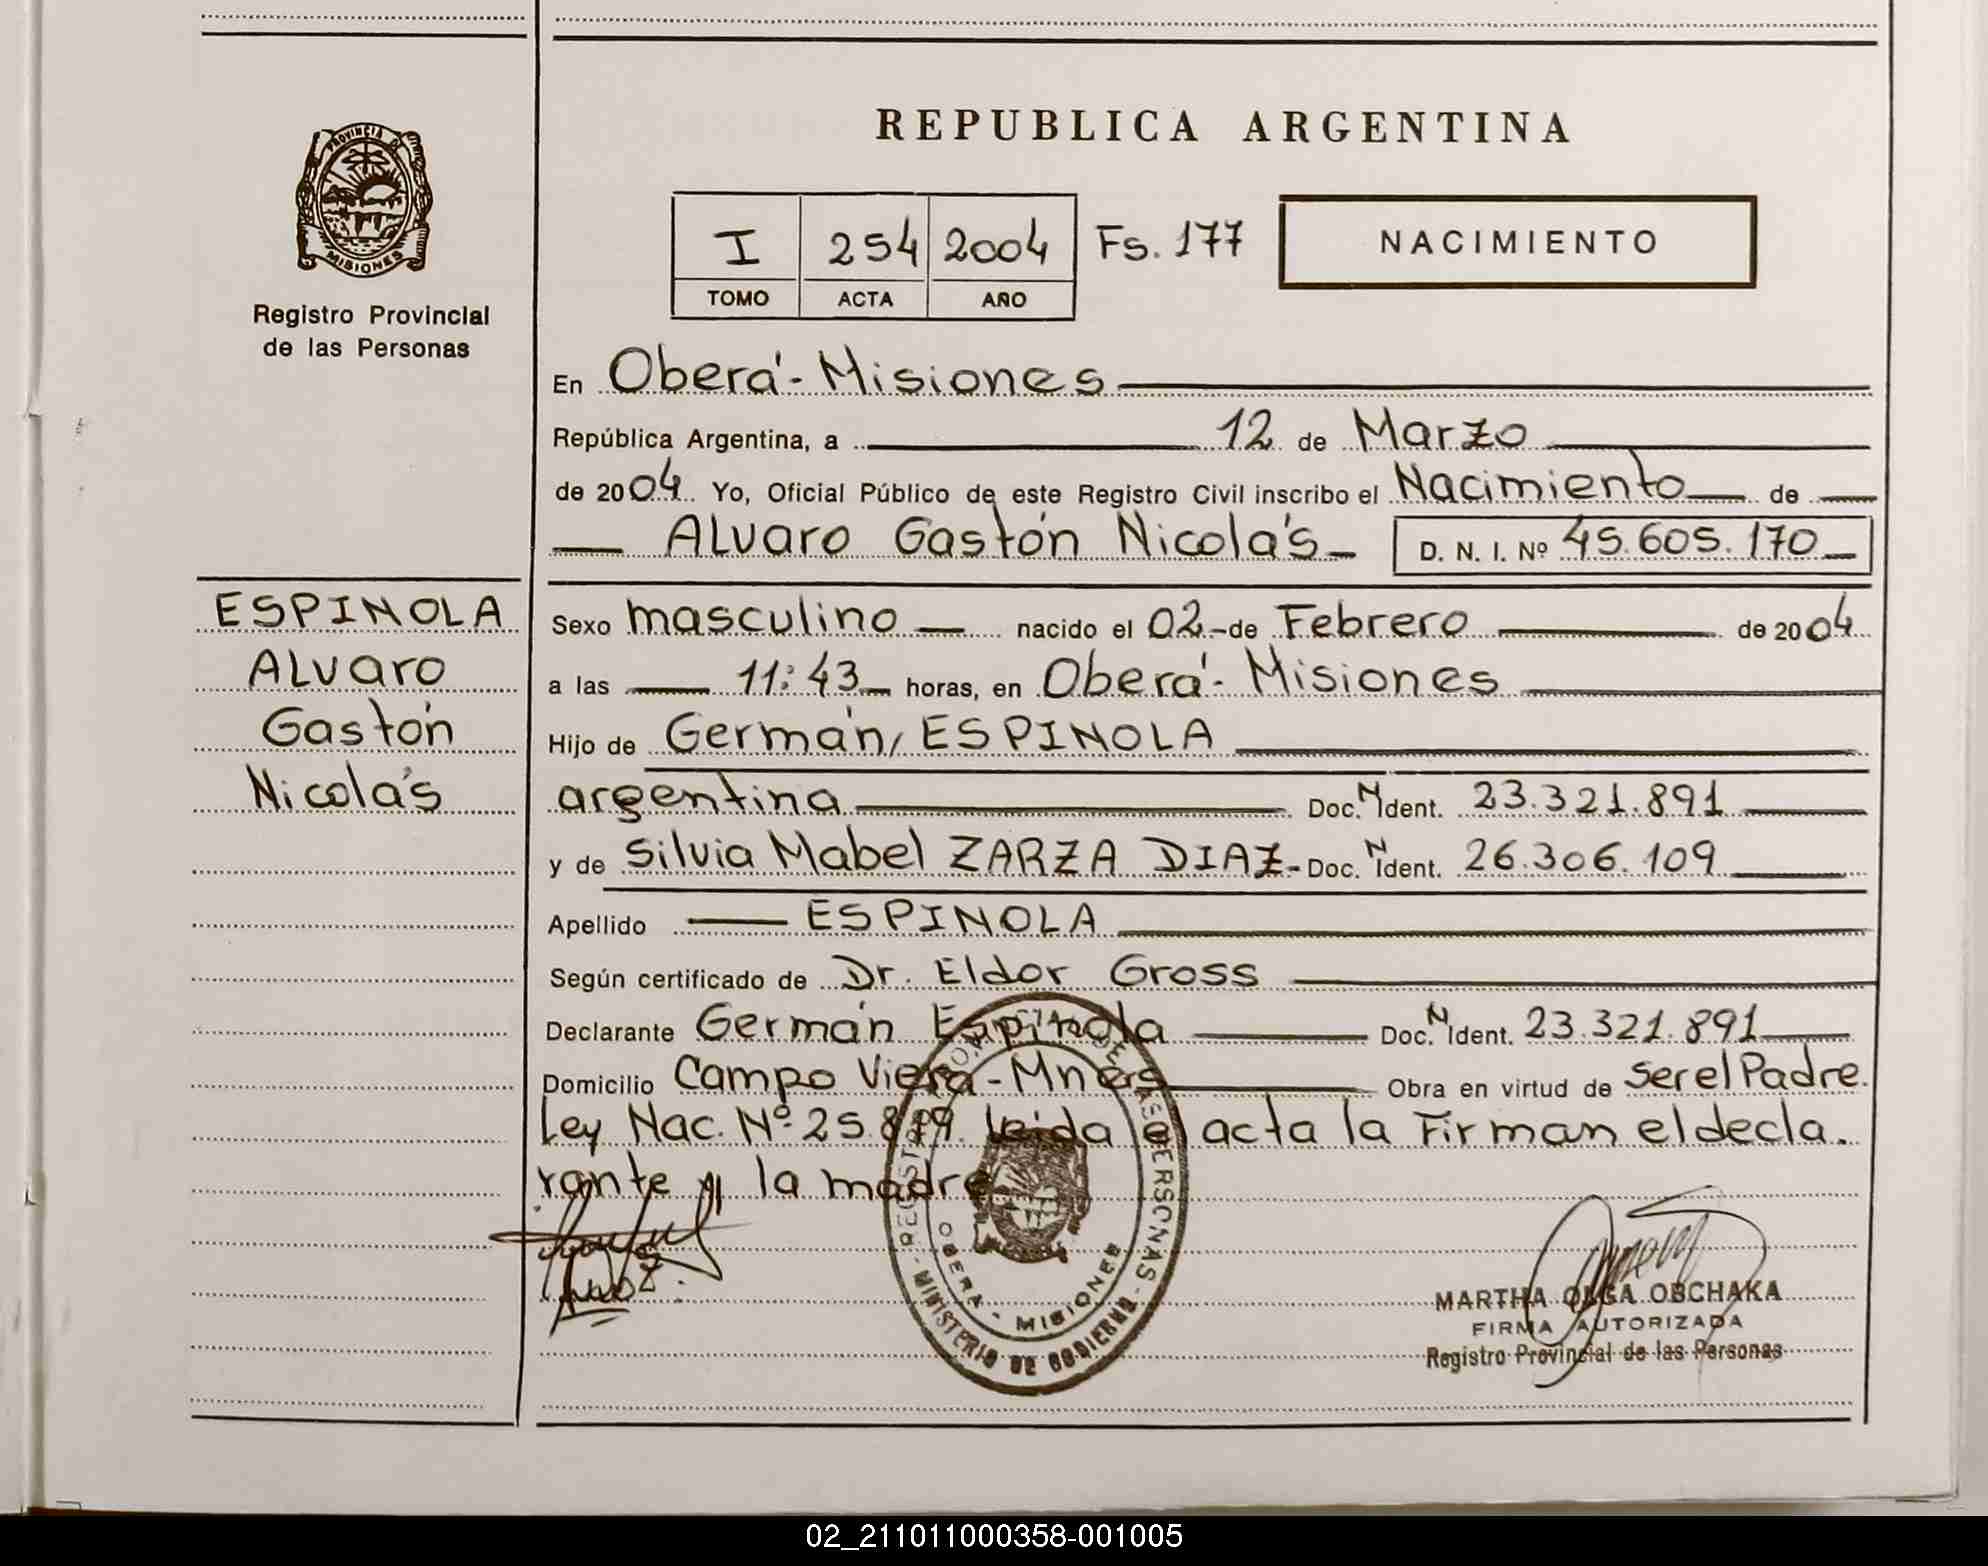 PROVINCIA DE
MISIONES
Registro Provincial
de las Personas
REPUBLICA ARGENTINA
I 254 2004 Fs. 177 NACIMIENTO
TOMO ACTA AÑO
En Oberá - Misiones
República Argentina, a 12 de Marzo
de 2004 Yo, Oficial Público de este Registro Civil inscribo el Nacimiento de
Alvaro Gastón Nicolás D. N. I. Nº 45.605.170
ESPINOLA
Alvaro
Gastón
Nicolás
Sexo masculino nacido el 02 de Febrero de 2004
a las 11:43 horas, en Oberá - Misiones
Hijo de Germán, ESPINOLA
argentina Doc. N Ident. 23.321.891
y de Silvia Mabel ZARZA DIAZ - Doc. N Ident. 26.306.109
Apellido ESPINOLA
Según certificado de Dr. Eldor Gross
Declarante Germán Espinola Doc. N Ident. 23.321.891
Domicilio Campo Viera - Mnes Obra en virtud de ser el Padre.
Ley Nac. Nº 25.819. leída el acta la Firman el decla.
rante y la madre
REGISTRO PROVINCIAL DE LAS PERSONAS - MINISTERIO DE GOBIERNO -
OBERA - MISIONES
MARTHA OLGA OBCHAKA
FIRMA AUTORIZADA
Registro Provincial de las Personas
02_211011000358-001005